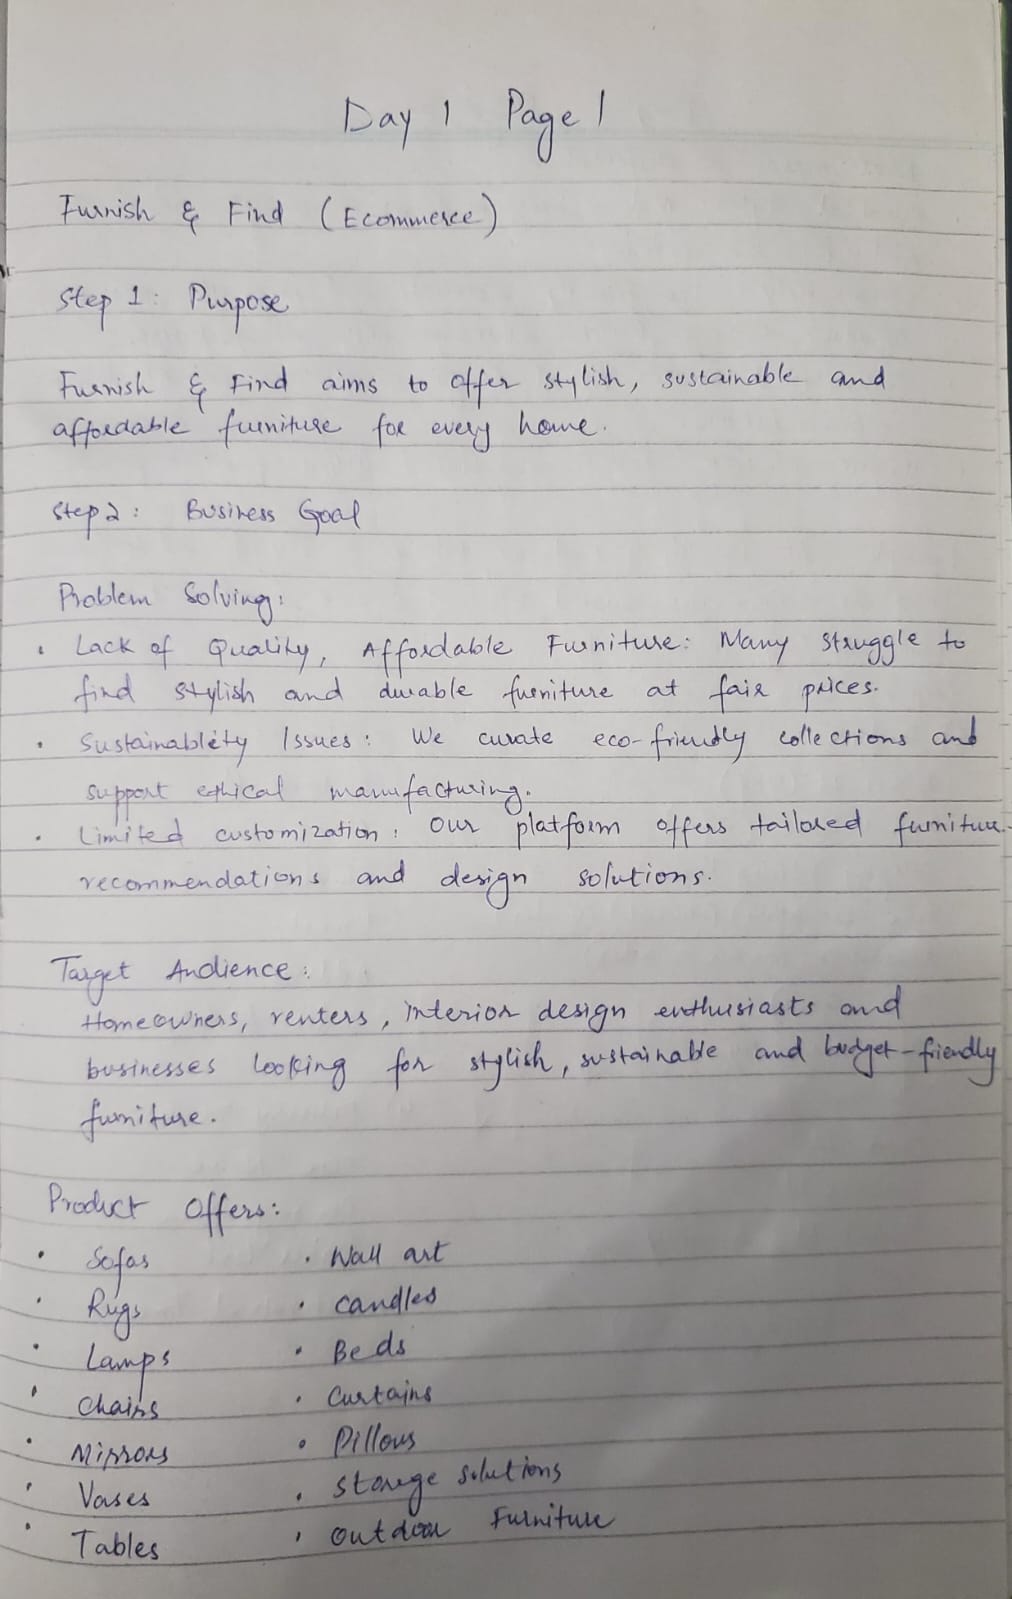 Day 1 Page 1
Furnish & Find (Ecommerce)
Step 1: Purpose
Furnish & Find aims to offer stylish, sustainable and
affordable furniture for every home.
Step 2: Business Goal
Problem Solving:
• Lack of Quality, Affordable Furniture: Many struggle to
find stylish and durable furniture at fair prices.
• Sustainablety Issues: We curate eco-friendly collections and
support ethical manufacturing.
• Limited customization: Our platform offers tailored furniture
recommendations and design solutions.
Target Audience:
Homeowners, renters, interior design enthusiasts and
businesses looking for stylish, sustainable and budget-friendly
furniture.
Product Offers:
• Sofas • Wall art
• Rugs • candles
• Lamps • Beds
• Chairs • Curtains
• Mirrors • Pillows
• Vases • Storage solutions
• Tables • Outdoor Furniture